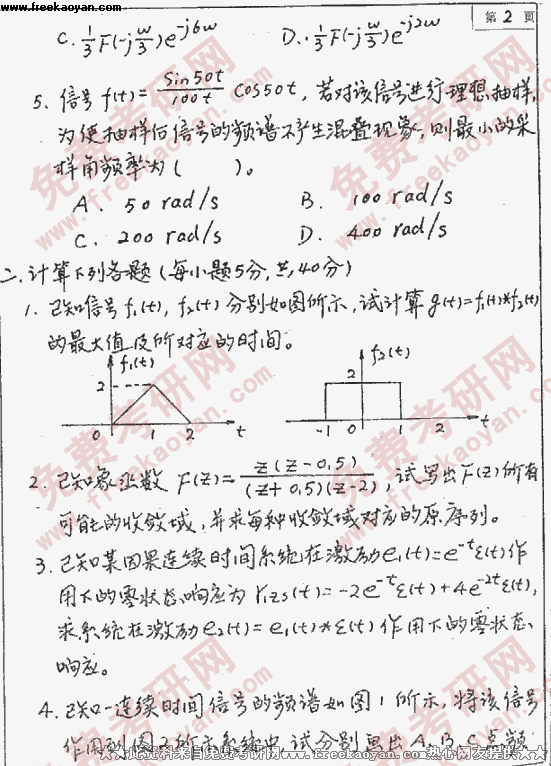 www.freekaoyan.com
第 2 页
C. 1/3 F(-j w/3) e^{-j6w} D. 1/3 F(-j w/3) e^{-j2w}
5. 信号 f(t) = sin50t/100t cos50t, 若对该信号进行理想抽样,
为使抽样后信号的频谱不产生混叠现象, 则最小的采
样角频率为( )。
A. 50 rad/s B. 100 rad/s
C. 200 rad/s D. 400 rad/s
二. 计算下列各题 (每小题5分, 共40分)
1. 已知信号 f₁(t), f₂(t) 分别如图所示, 试计算 g(t)=f₁(t)*f₂(t)
的最大值及所对应的时间。
f₁(t) f₂(t)
2 2
0 1 2 t -1 0 1 2 t
2. 已知象函数 F(z) = z(z-0.5)/(z+0.5)(z-2), 试写出F(z)所有
可能的收敛域, 并求每种收敛域对应的原序列。
3. 已知某因果连续时间系统在激励 e₁(t)=e^{-t}ε(t) 作
用下的零状态响应为 r₁zs(t)=-2e^{-t}ε(t)+4e^{-2t}ε(t),
求系统在激励 e₂(t)=e₁(t)*ε(t) 作用下的零状态
响应。
4. 已知一连续时间信号的频谱如图1所示, 将该信号
作用到图2所示系统中, 试分别画出A、B、C点频
免费考研网
www.freekaoyan.com